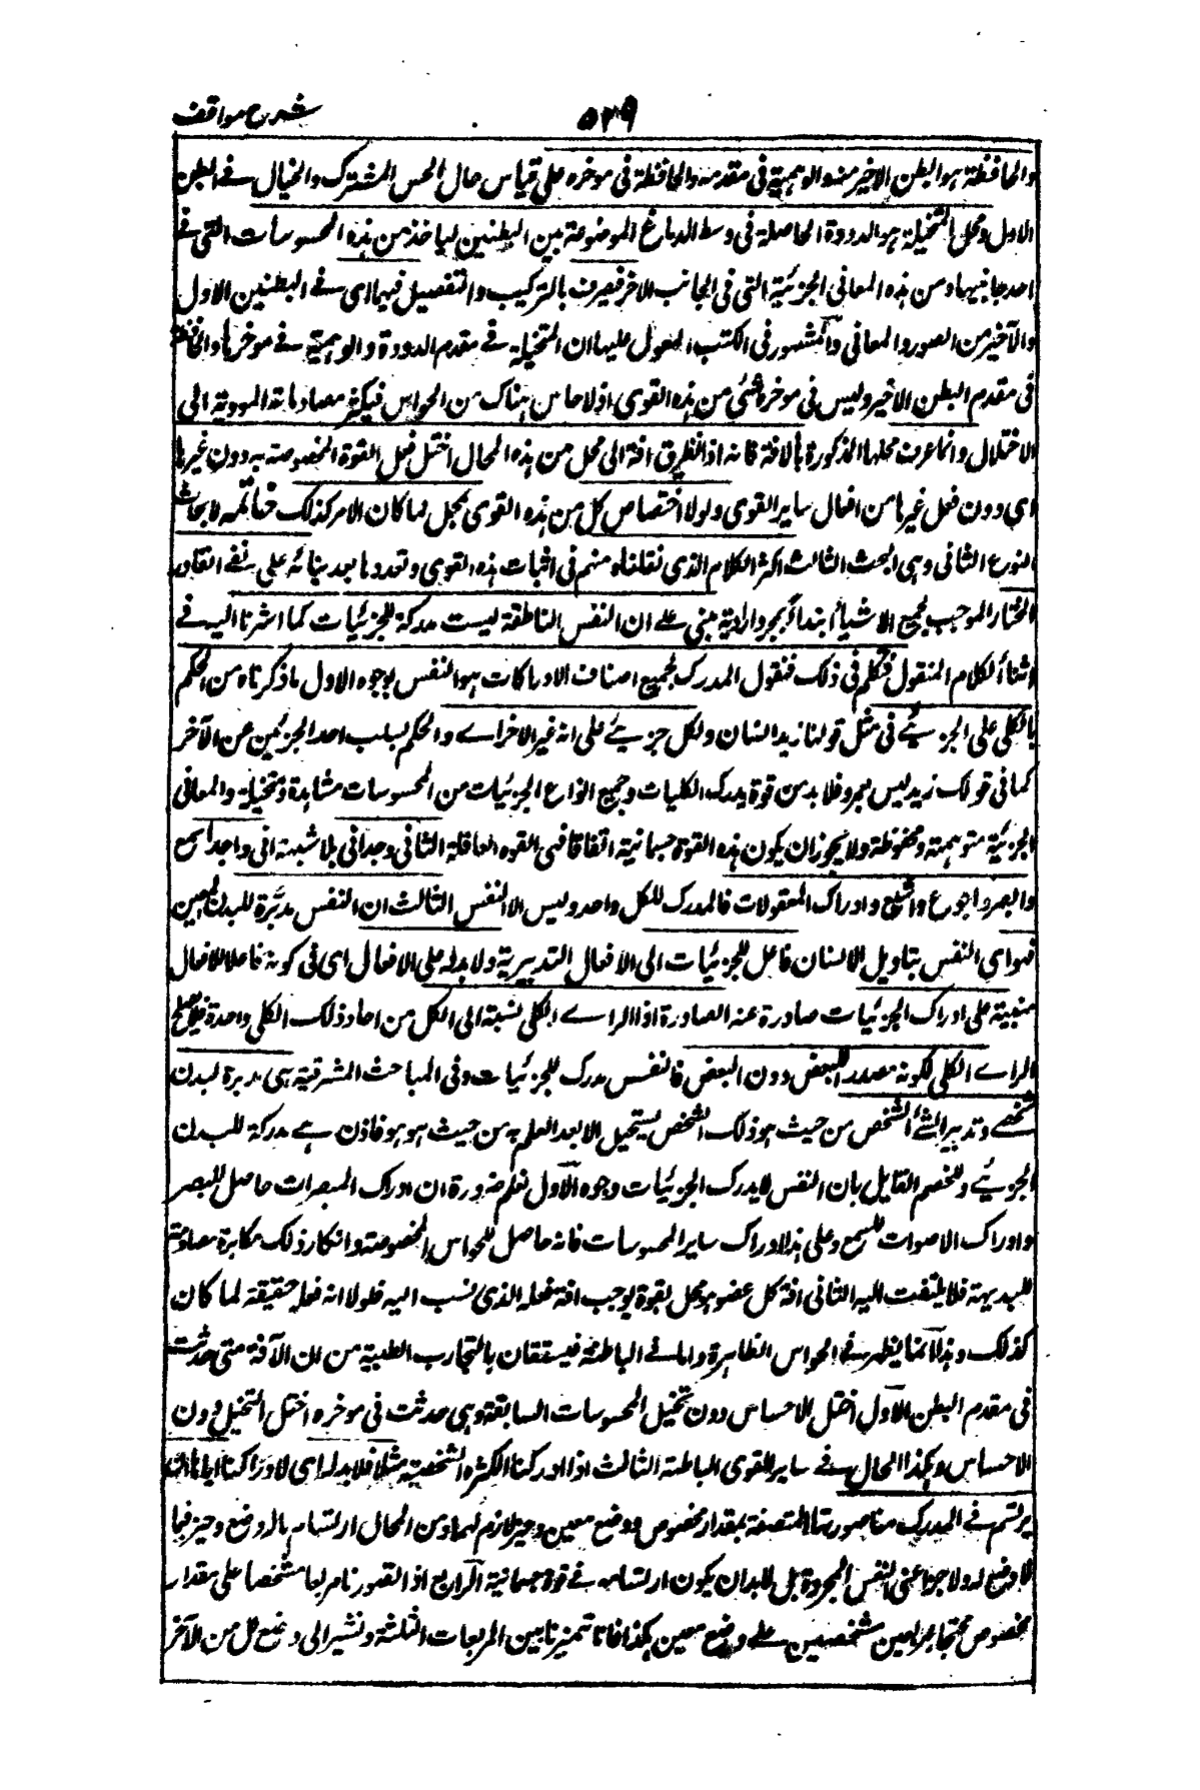 شرح مواقف
٥٢٩
والحافظة هو البطن الاخير منه والوهمية فى مقدمه والحافظة فى موخره على قياس حال الحس المشترك والخيال فے البطن
الاول ومحل المتخيلة هو الدودة الحاصلة فى وسط الدماغ الموضوعة بين البطنين لياخذ من هذه المحسوسات التى فے
احد جانبيها ومن هذه المعانى الجزئية التى فى الجانب الاخر فيصرف بالتركيب والتفصيل فيها اى فے البطنين الاول
والآخير من الصور والمعانى والمشهور فى الكتب المعول عليها ان المتخيلة فے مقدم الدودة والوهمية فے موخرها والحافظة
فى مقدم البطن الاخير وليس فى موخره شئ من هذه القوى اذ لا حاس هناك من الحواس فيكثر مصادماته المودية الى
الاختلال وانما عرف محلها المذكورة بالافة فانه اذا تطرق افة الى محل من هذه المحال اختل فعل القوة المخصوصة به دون غيرها
اى دون فعل غيرها من افعال ساير القوى ولولا اختصاص كل من هذه القوى بمحل لما كان الامر كذلك خاتمه لابحاث
النوع الثانى وهى البحث الثالث اكثر الكلام الذى نقلناه منهم فى اثبات هذه القوى وتعددها بعد بنائه على نفے القادر
المختار الموجب لجميع الاشياء ابتداء بمجرد ارادته مبنى علے ان النفس الناطقة ليست مدركة للجزئيات كما اشرنا اليه فے
اثناء الكلام المنقول فنتكلم فى ذلك فنقول المدرك لجميع اصناف الادراكات هو النفس بوجوه الاول ما ذكرناه من الحكم
بالكلى على الجزئے فى مثل قولنا زيد انسان ولكل جزئے على انه غير الاخر اے والحكم بسلب احد الجزئين عن الآخر
كما فى قولك زيد ليس بعمرو فلا بد من قوة يدرك الكليات وجميع انواع الجزئيات من المحسوسات مشاهدة ومتخيلة والمعانى
الجزئية متوهمة ومحفوظة ولا يجوز ان يكون هذه القوة جسمانية اتفاقا فهى القوه العاقلة الثانى وجدانى بلا شبهة انى واحد اسمع
وابصر واجوع واشبع وادراك المعقولات فالمدرك للكل واحد وليس الا النفس الثالث ان النفس مدبرة للبدن المعين
فهو اى النفس بتاويل الانسان فاعل للجزئيات الى الافعال التدبيرية ولا بد له على الافعال اى فى كونه فاعلا للافعال
منبية على ادراك الجزئيات صادرة عنه الصادرة اذ الراے الكلى نسبته الى الكل من احاد ذلك الكلى واحدة فلا يصلح
الراے الكلى لكونه مصدر البعض دون البعض فالنفس مدرك للجزئيات وفى المباحث المشرقية هى مدبرة لبدن
شخصے وتدبير الشئ الشخصى من حيث هو ذلك الشخص يستحيل الا بعد العلم به من حيث هو هو فاذن هے مدركة للبدن
الجزئے وللخصم القايل بان النفس لا يدرك الجزئيات وجوه الآول نعلم ضرورة ان ادراك المبصرات حاصل للبصر
وادراك الاصوات للسمع وعلى هذا ادراك ساير المحسوسات فانه حاصل للحواس المخصوصة وانكار ذلك مكابرة مصادمة
للبديهة فلا يلتفت اليه الثانى افة كل عضو هو محل لقوة يوجب افة فعله الذى نسب اليه فلولا انه فعله حقيقة لما كان
كذلك وهذا انما يظهر فے الحواس الظاهرة واما فے الباطنة فيستعان بالتجارب الطبية من ان الآفة متى حدثت
فى مقدم البطن الآول اختل الاحساس دون تخيل المحسوسات السابقة ومتى حدثت فى موخره اختل التخيل دون
الاحساس وهكذا الحال فے ساير القوى الباطنة الثالث اذا ادركنا الكثرة الشخصية مثلا فلا بد له اى لادراكنا اياها ان
يرتسم فے المدرك منا صورتها المتصفة بمقدار مخصوص ووضع معين وحيز لازم لهما ومن المحال ارتسام ما له وضع وحيز فيما
لا وضع له ولا حيز اعنى النفس المجردة بل لابد ان يكون ارتسامه فے قوة جسمانية الرابع اذا تصورنا مربعا مشخصا على مقدار
مخصوص مجنحا بمربعين مشخصين علے وضع معين هكذا فانا نميز ما بين المربعات الثلثة ونشير الى وضع كل من الآخر